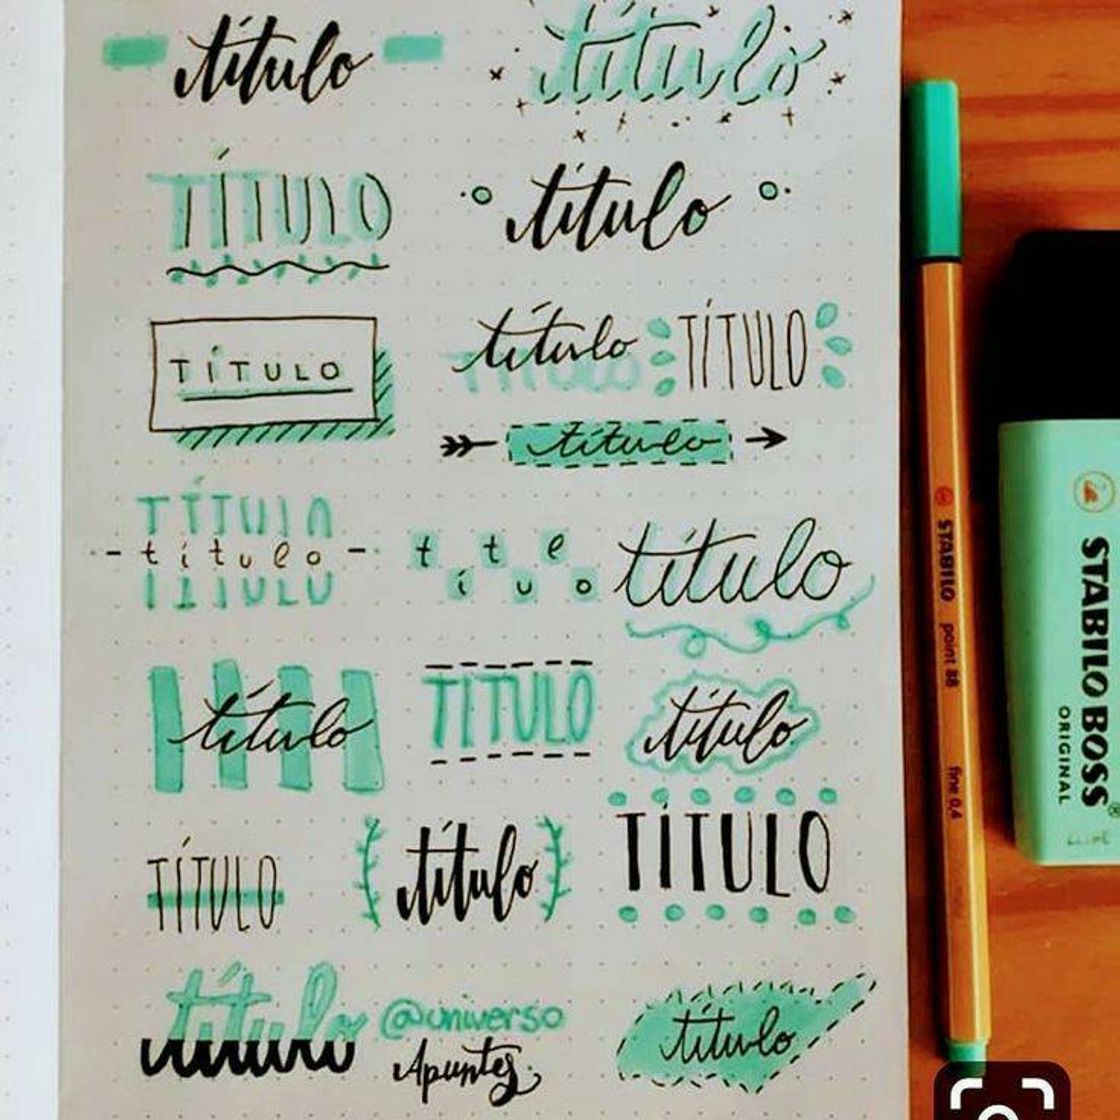 título título
TÍTULO título
TÍTULO título TÍTULO
título
TÍTULO
título título título
título TÍTULO título
TÍTULO título TÍTULO
título @universo título
Apuntes
STABILO point 88 fine 0,4
STABILO BOSS®
ORIGINAL